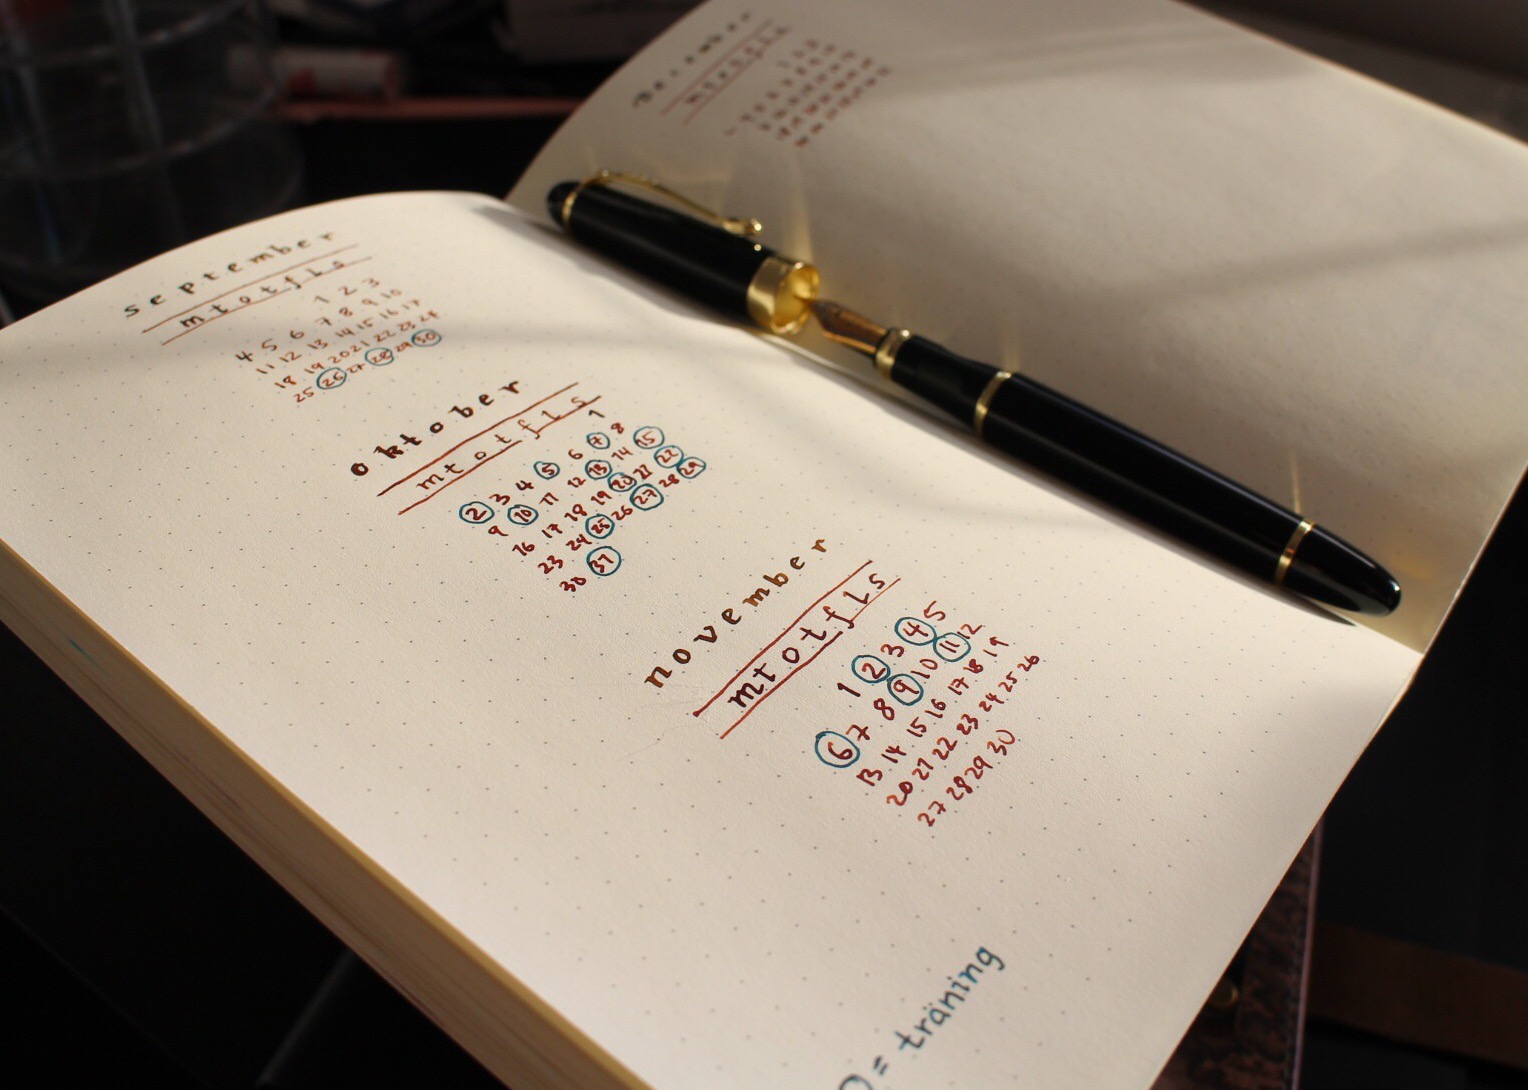 september
m t o t f L s
1 2 3
4 5 6 7 8 9 10
11 12 13 14 15 16 17
18 19 20 21 22 23 24
25 26 27 28 29 30
oktober
m t o t f L s
1
2 3 4 5 6 7 8
9 10 11 12 13 14 15
16 17 18 19 20 21 22
23 24 25 26 27 28 29
30 31
november
m t o t f L s
1 2 3 4 5
6 7 8 9 10 11 12
13 14 15 16 17 18 19
20 21 22 23 24 25 26
27 28 29 30
= träning
december
m t o t f L s